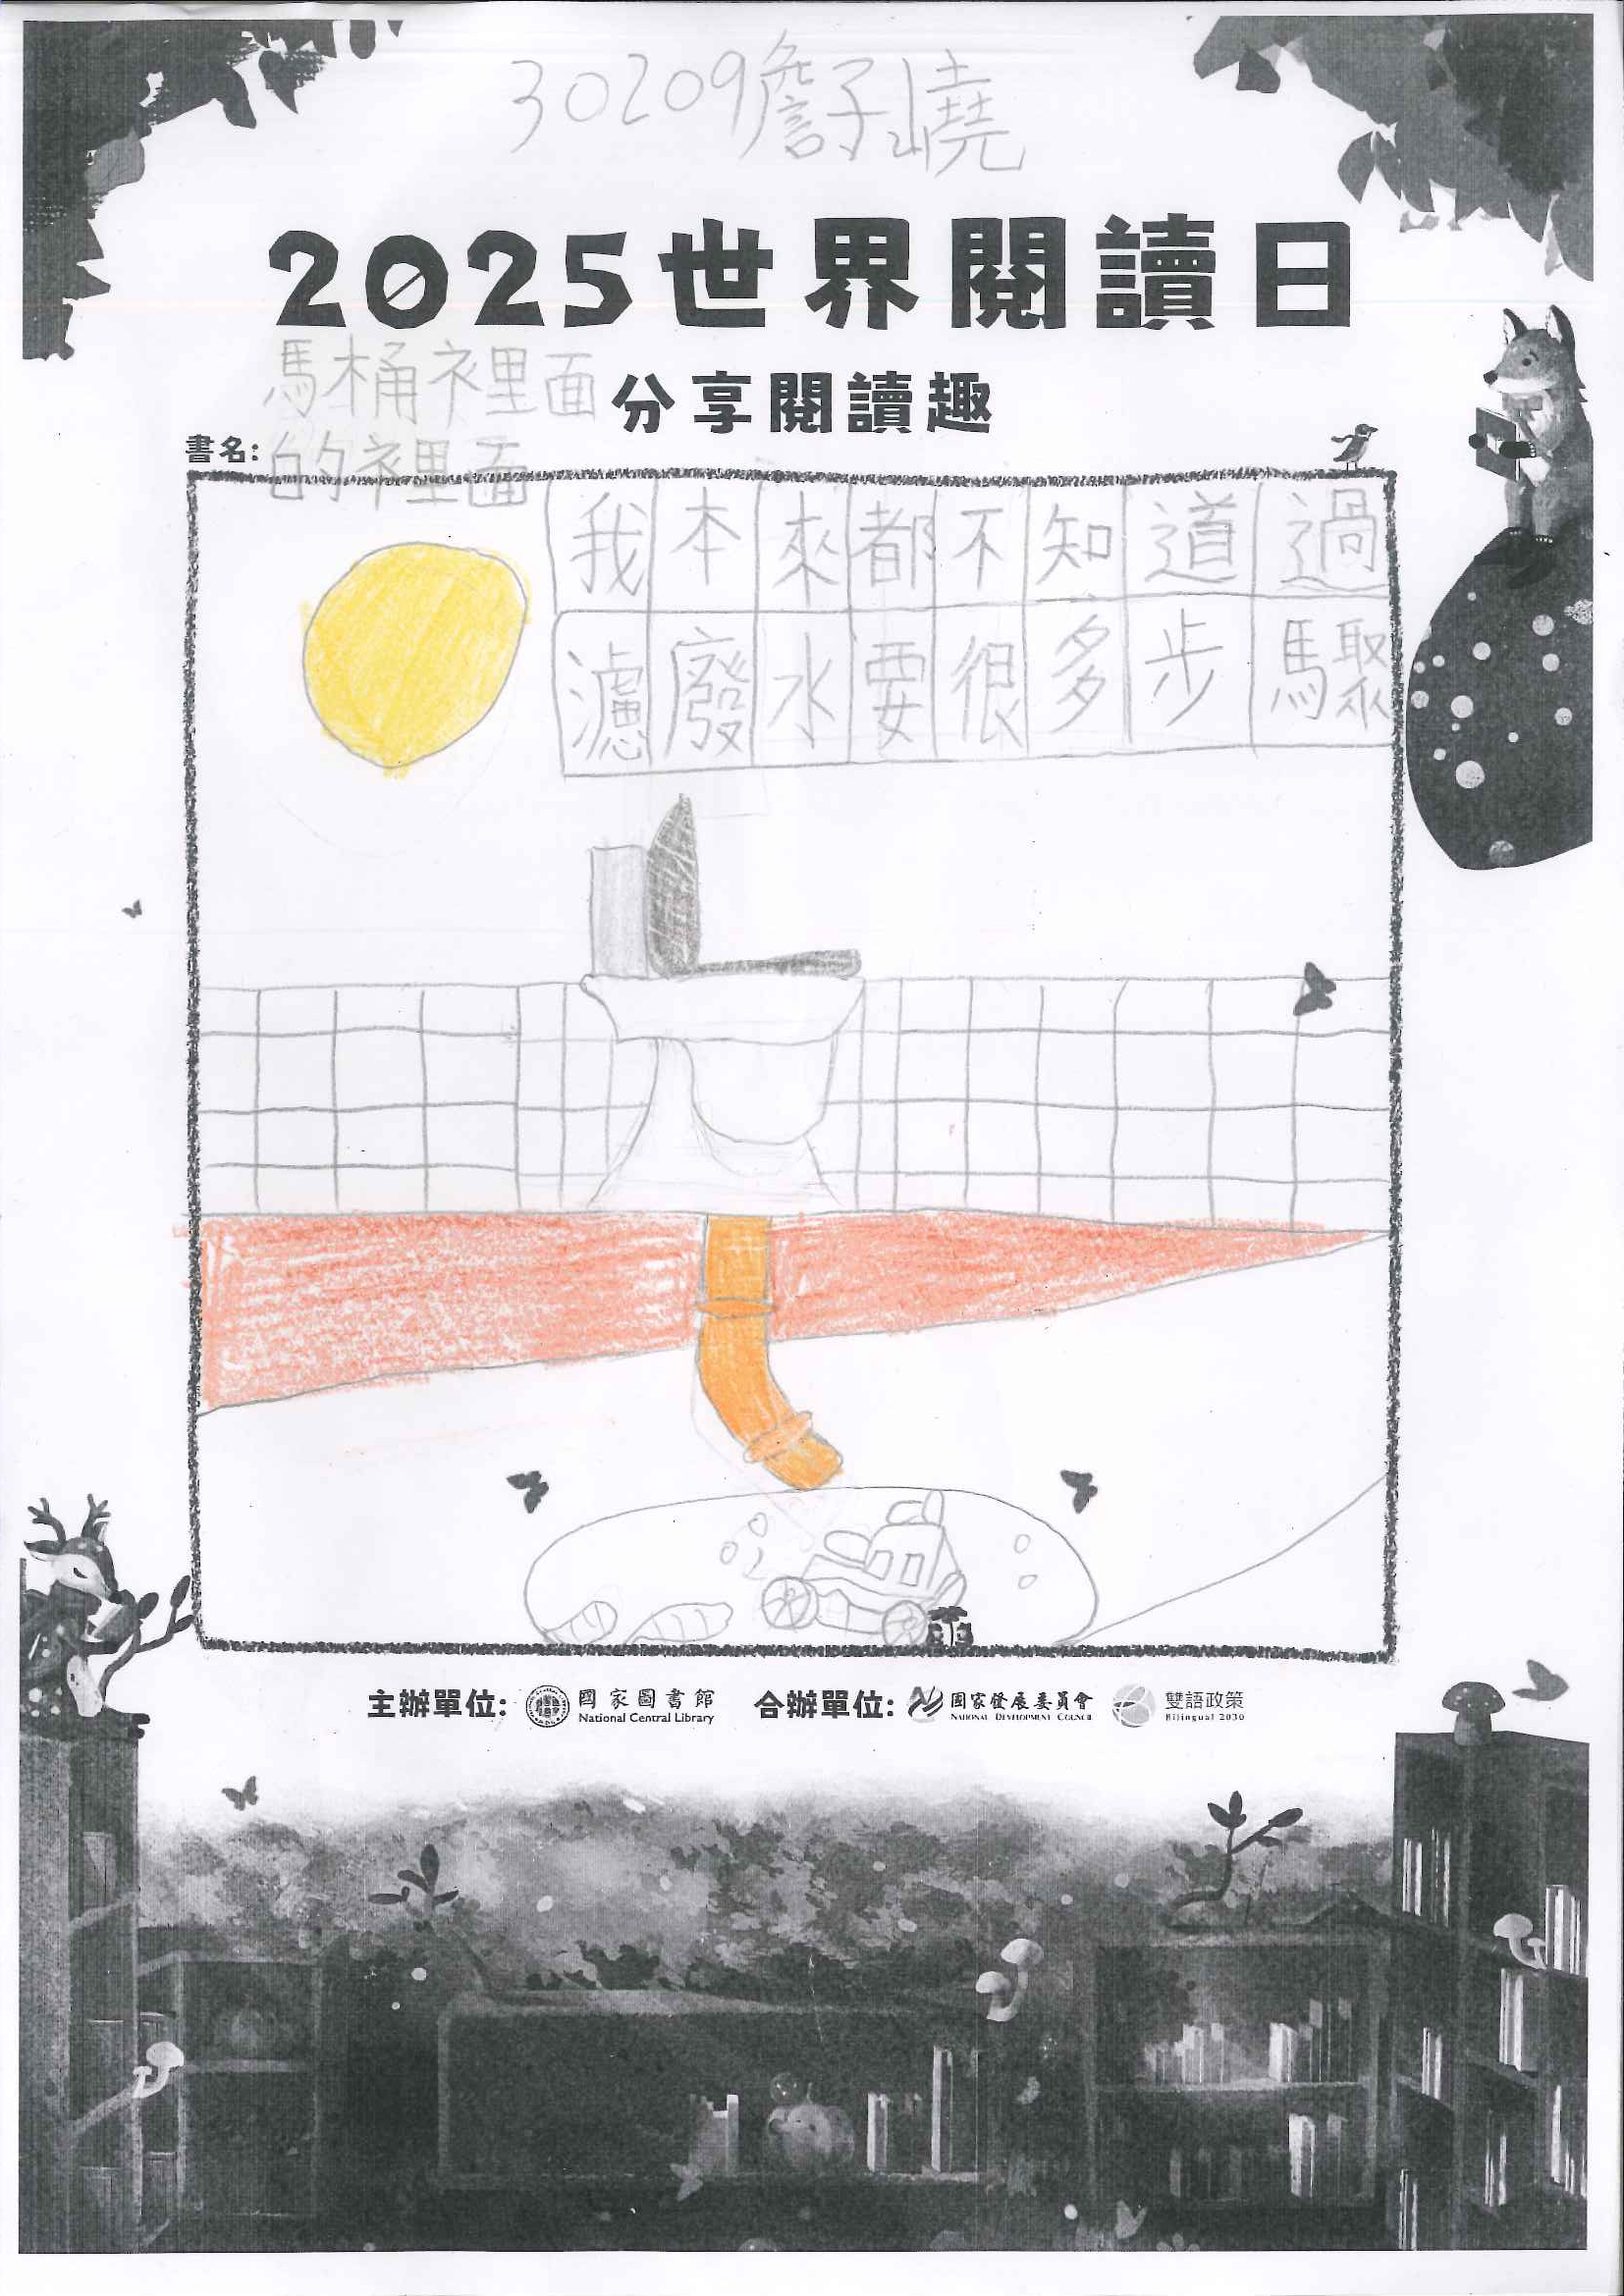 30209詹子嶢
2025世界閱讀日
分享閱讀趣
書名:
馬桶裡面
的裡面
我本來都不知道過
濾廢水要很多步驟
主辦單位: 國家圖書館 National Central Library 合辦單位: 國家發展委員會 National Development Council 雙語政策 Bilingual 2030